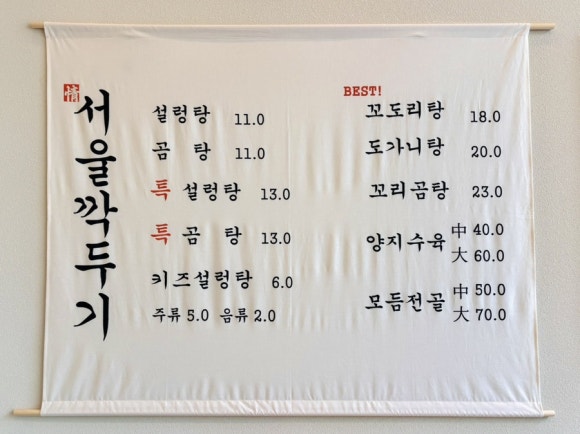 精
서울깍두기
설렁탕 11.0
곰 탕 11.0
특 설렁탕 13.0
특 곰 탕 13.0
키즈설렁탕 6.0
주류 5.0 음류 2.0
BEST!
꼬도리탕 18.0
도가니탕 20.0
꼬리곰탕 23.0
양지수육 中 40.0
大 60.0
모듬전골 中 50.0
大 70.0